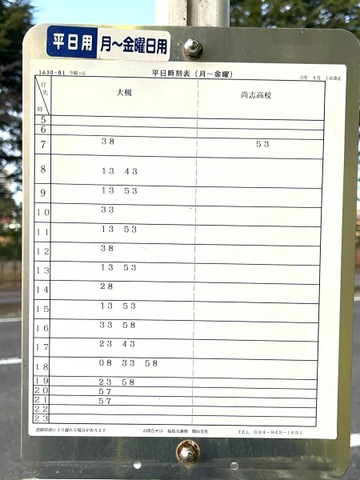 平日用 月～金曜日用
1630-01
平日時刻表（月～金曜）
行先 大槻 尚志高校
時
5
6
7 38 53
8 13 43
9 13 53
10 33
11 13 53
12 38
13 13 53
14 28
15 13 53
16 33 58
17 23 43
18 08 33 58
19 23 58
20 57
21 57
22
23
道路状況により遅れる場合があります お問合せは 福島交通㈱ 郡山支社 TEL 024-943-1651